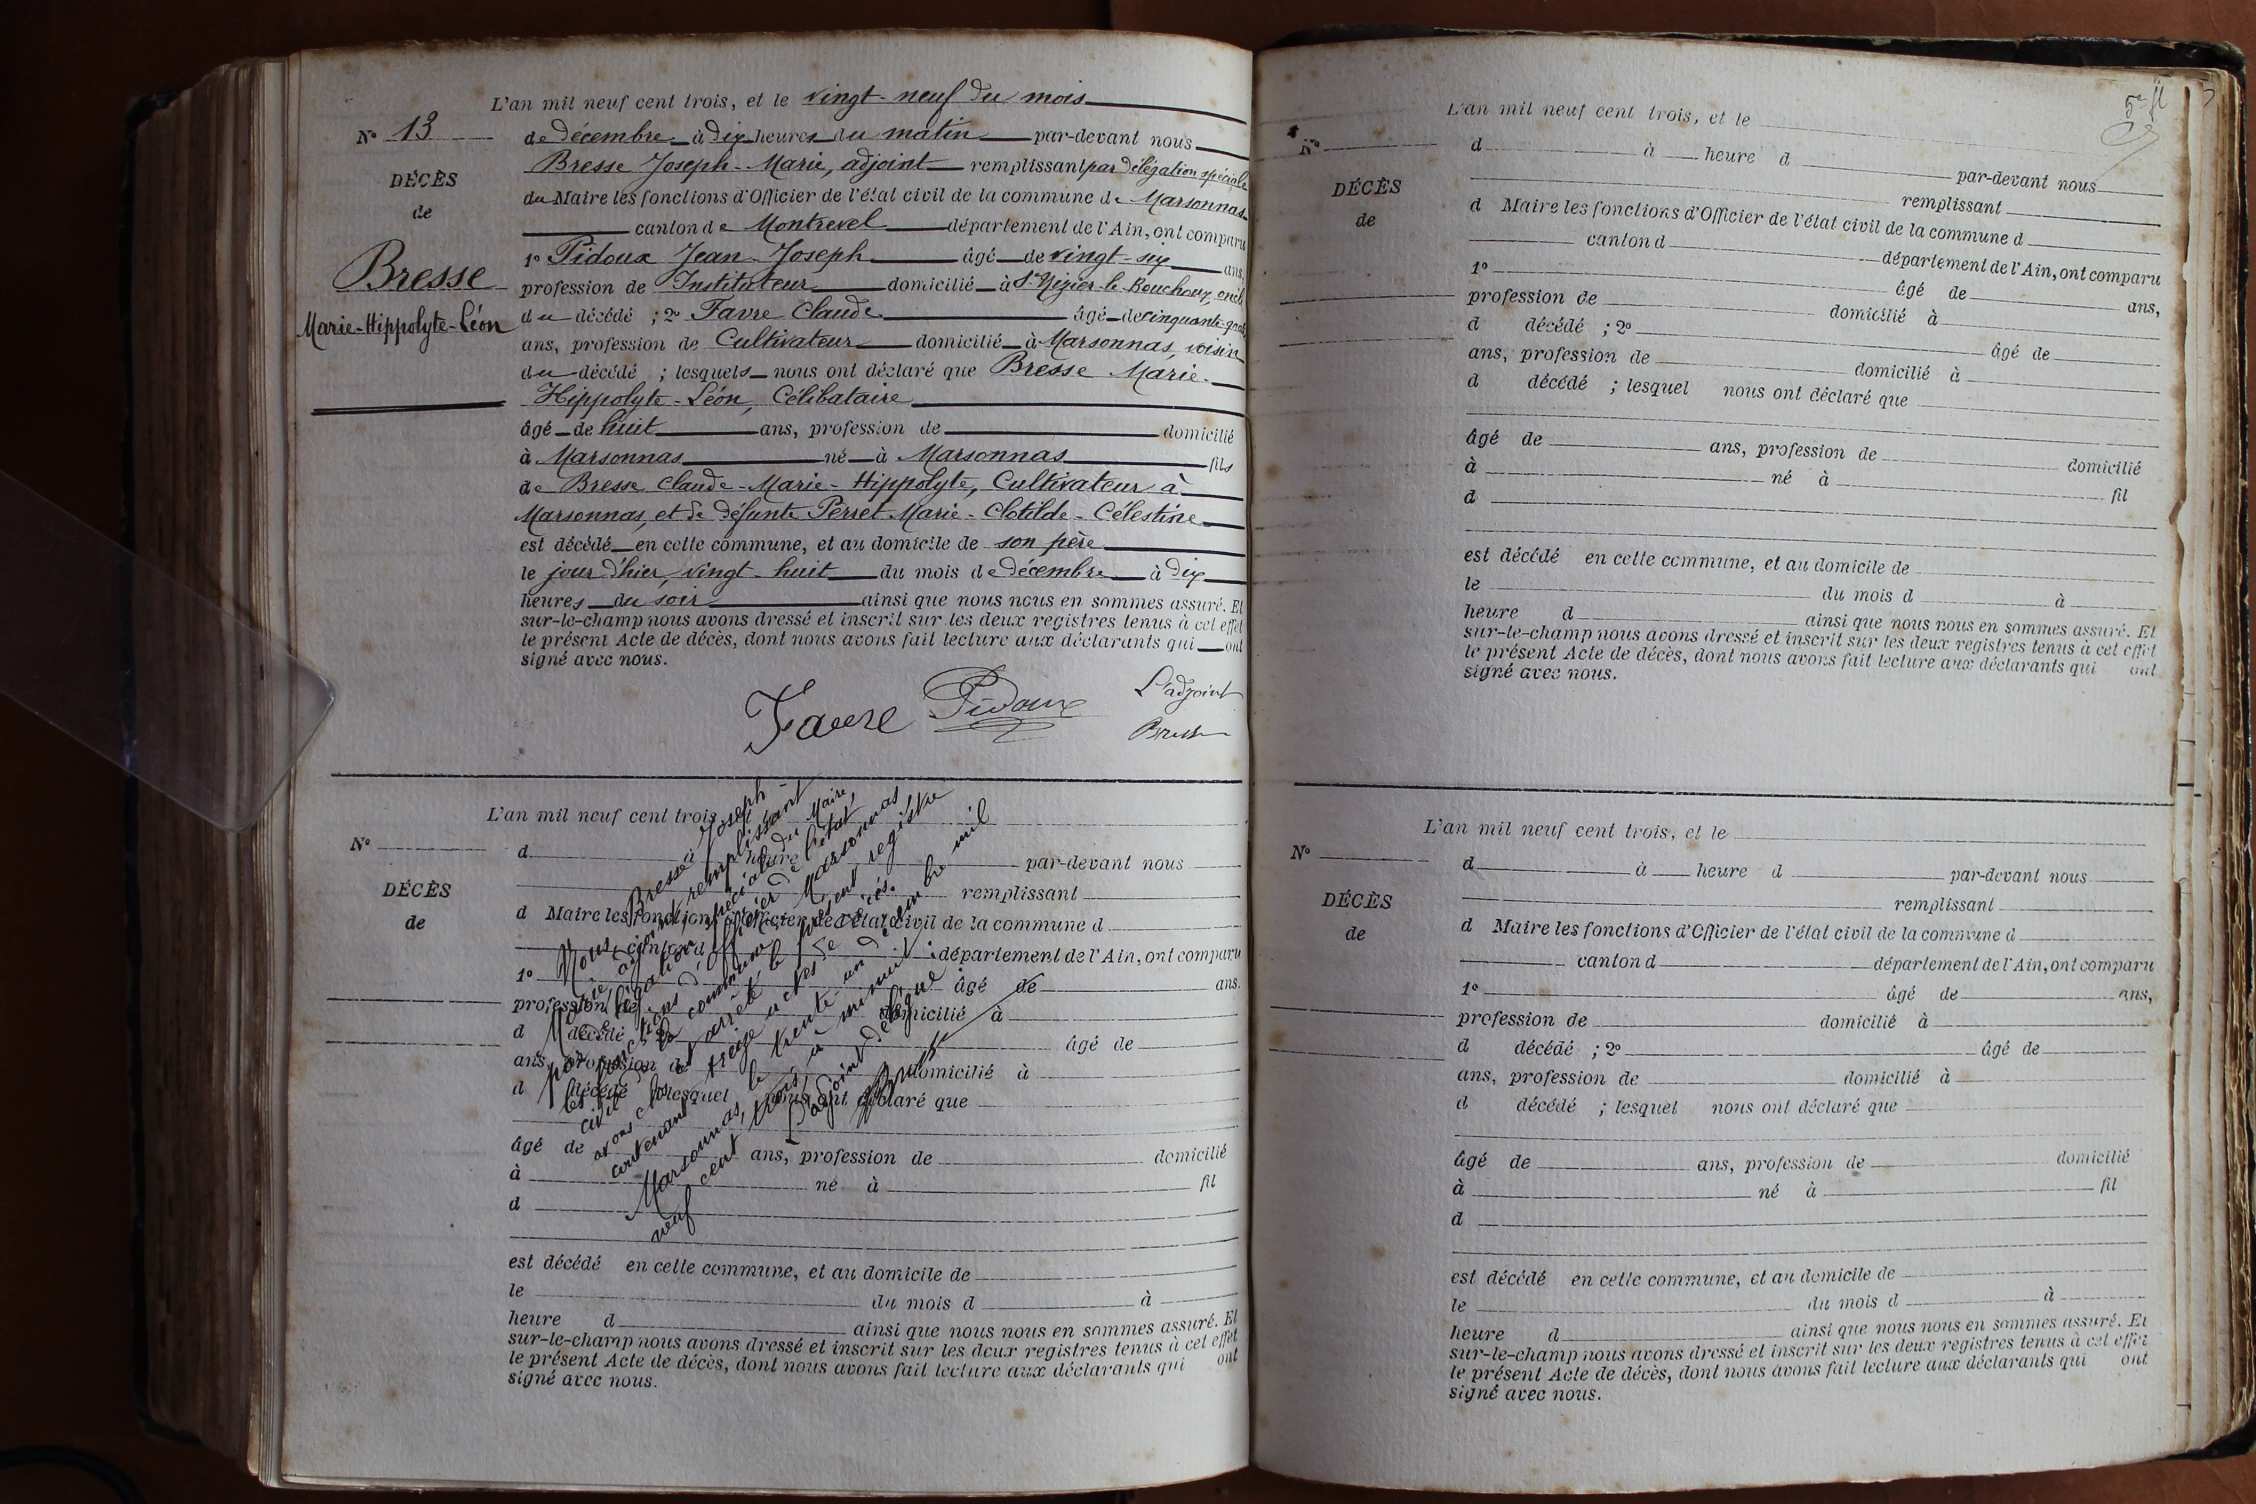 L'an mil neuf cent trois, et le vingt-neuf du mois
No 13
de décembre à dix heures du matin par-devant nous
Bresse Joseph-Marie, adjoint remplissant par délégation spéciale
DÉCÈS
du Maire les fonctions d'Officier de l'état civil de la commune de Marsonnas
de
canton de Montrevel département de l'Ain, ont comparu
1o Pidoux Jean-Joseph âgé de vingt-six ans,
Bresse
profession de Instituteur domicilié à St Nizier-le-Bouchoux, oncle
Marie-Hippolyte-Léon
du décédé ; 2o Favre Claude âgé de cinquante-
ans, profession de Cultivateur domicilié à Marsonnas, voisin
du décédé ; lesquels nous ont déclaré que Bresse Marie-
Hippolyte-Léon, Célibataire
âgé de huit ans, profession de domicilié
à Marsonnas né à Marsonnas fils
de Bresse Claude-Marie-Hippolyte, Cultivateur à
Marsonnas, et de défunte Perret Marie-Clotilde-Célestine
est décédé en cette commune, et au domicile de son père
le jour d'hier, vingt-huit du mois de décembre à dix
heures du soir ainsi que nous nous en sommes assuré. Et
sur-le-champ nous avons dressé et inscrit sur les deux registres tenus à cet effet
le présent Acte de décès, dont nous avons fait lecture aux déclarants qui ont
signé avec nous.
Favre Pidoux L'adjoint
Bresse
L'an mil neuf cent trois
No
d à heure par-devant nous
DÉCÈS
remplissant
de
d Maire les fonctions d'Officier de l'état civil de la commune d
canton d département de l'Ain, ont comparu
1o âgé de ans.
profession de domicilié à
d décédé âgé de
ans, profession de domicilié à
d décédé ; lesquel nous ont déclaré que
âgé de ans, profession de domicilié
à né à fil
d
est décédé en cette commune, et au domicile de
le du mois d à
heure d ainsi que nous nous en sommes assuré. Et
sur-le-champ nous avons dressé et inscrit sur les deux registres tenus à cet effet
le présent Acte de décès, dont nous avons fait lecture aux déclarants qui ont
signé avec nous.
Nous, Bresse Joseph-
Marie, adjoint, remplissant
par délégation spéciale du Maire,
les fonctions d'officier de l'état
civil de la commune de Marsonnas
avons clos et arrêté le présent registre
contenant treize actes de décès.
Marsonnas, le trente-un décembre mil
neuf cent trois, à minuit.
L'adjoint délégué
Bresse
5e fl
L'an mil neuf cent trois, et le
No
d à heure d par-devant nous
DÉCÈS
remplissant
de
d Maire les fonctions d'Officier de l'état civil de la commune d
canton d département de l'Ain, ont comparu
1o âgé de ans,
profession de domicilié à
d décédé ; 2o âgé de
ans, profession de domicilié à
d décédé ; lesquel nous ont déclaré que
âgé de ans, profession de domicilié
à né à fil
d
est décédé en cette commune, et au domicile de
le du mois d à
heure d ainsi que nous nous en sommes assuré. Et
sur-le-champ nous avons dressé et inscrit sur les deux registres tenus à cet effet
le présent Acte de décès, dont nous avons fait lecture aux déclarants qui ont
signé avec nous.
L'an mil neuf cent trois, et le
No
d à heure d par-devant nous
DÉCÈS
remplissant
de
d Maire les fonctions d'Officier de l'état civil de la commune d
canton d département de l'Ain, ont comparu
1o âgé de ans,
profession de domicilié à
d décédé ; 2o âgé de
ans, profession de domicilié à
d décédé ; lesquel nous ont déclaré que
âgé de ans, profession de domicilié
à né à fil
d
est décédé en cette commune, et au domicile de
le du mois d à
heure d ainsi que nous nous en sommes assuré. Et
sur-le-champ nous avons dressé et inscrit sur les deux registres tenus à cet effet
le présent Acte de décès, dont nous avons fait lecture aux déclarants qui ont
signé avec nous.